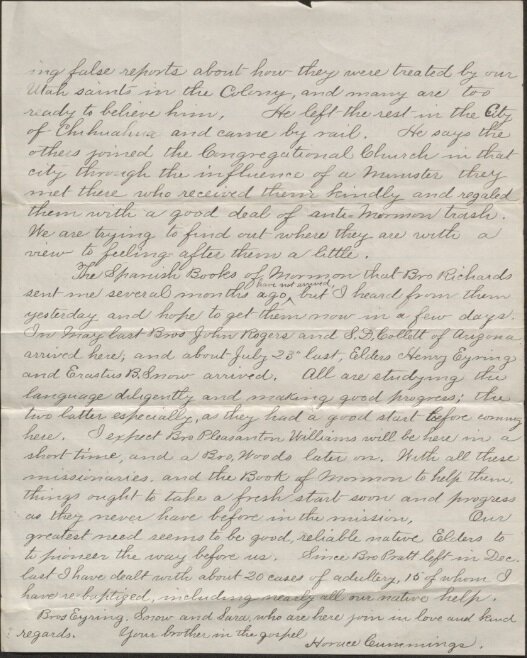 ing false reports about how they were treated by our
Utah saints in the Colony, and many are too
ready to believe him. He left the rest in the City
of Chihuahua and came by rail. He says the
others joined the Congregational Church in that
city through the influence of a Minister they
met there who received them kindly and regaled
them with a good deal of anti-Mormon trash.
We are trying to find out where they are with a
view to feeling after them a little.
The Spanish Books of Mormon that Bro Richards
have not arrived
sent me several months ago, but I heard from them
yesterday and hope to get them now in a few days.
In May last Bros John Rogers and S.D. Collett of Arizona
arrived here, and about July 23" last, Elders Henry Eyring
and Erastus B. Snow arrived. All are studying the
language diligently and making good progress; the
two latter especially, as they had a good start before coming
here. I expect Bro Pleasanton Williams will be here in a
short time, and a Bro. Woods later on. With all these
missionaries and the Book of Mormon to help them,
things ought to take a fresh start soon and progress
as they never have before in the mission. Our
greatest need seems to be good, reliable native Elders to
to pioneer the way before us. Since Bro Pratt left in Dec.
last I have dealt with about 20 cases of adultery, 15 of whom I
have re-baptized, including nearly all our native help.
Bros Eyring, Snow and Sara, who are here join in love and kind
regards. Your brother in the gospel
Horace Cummings.